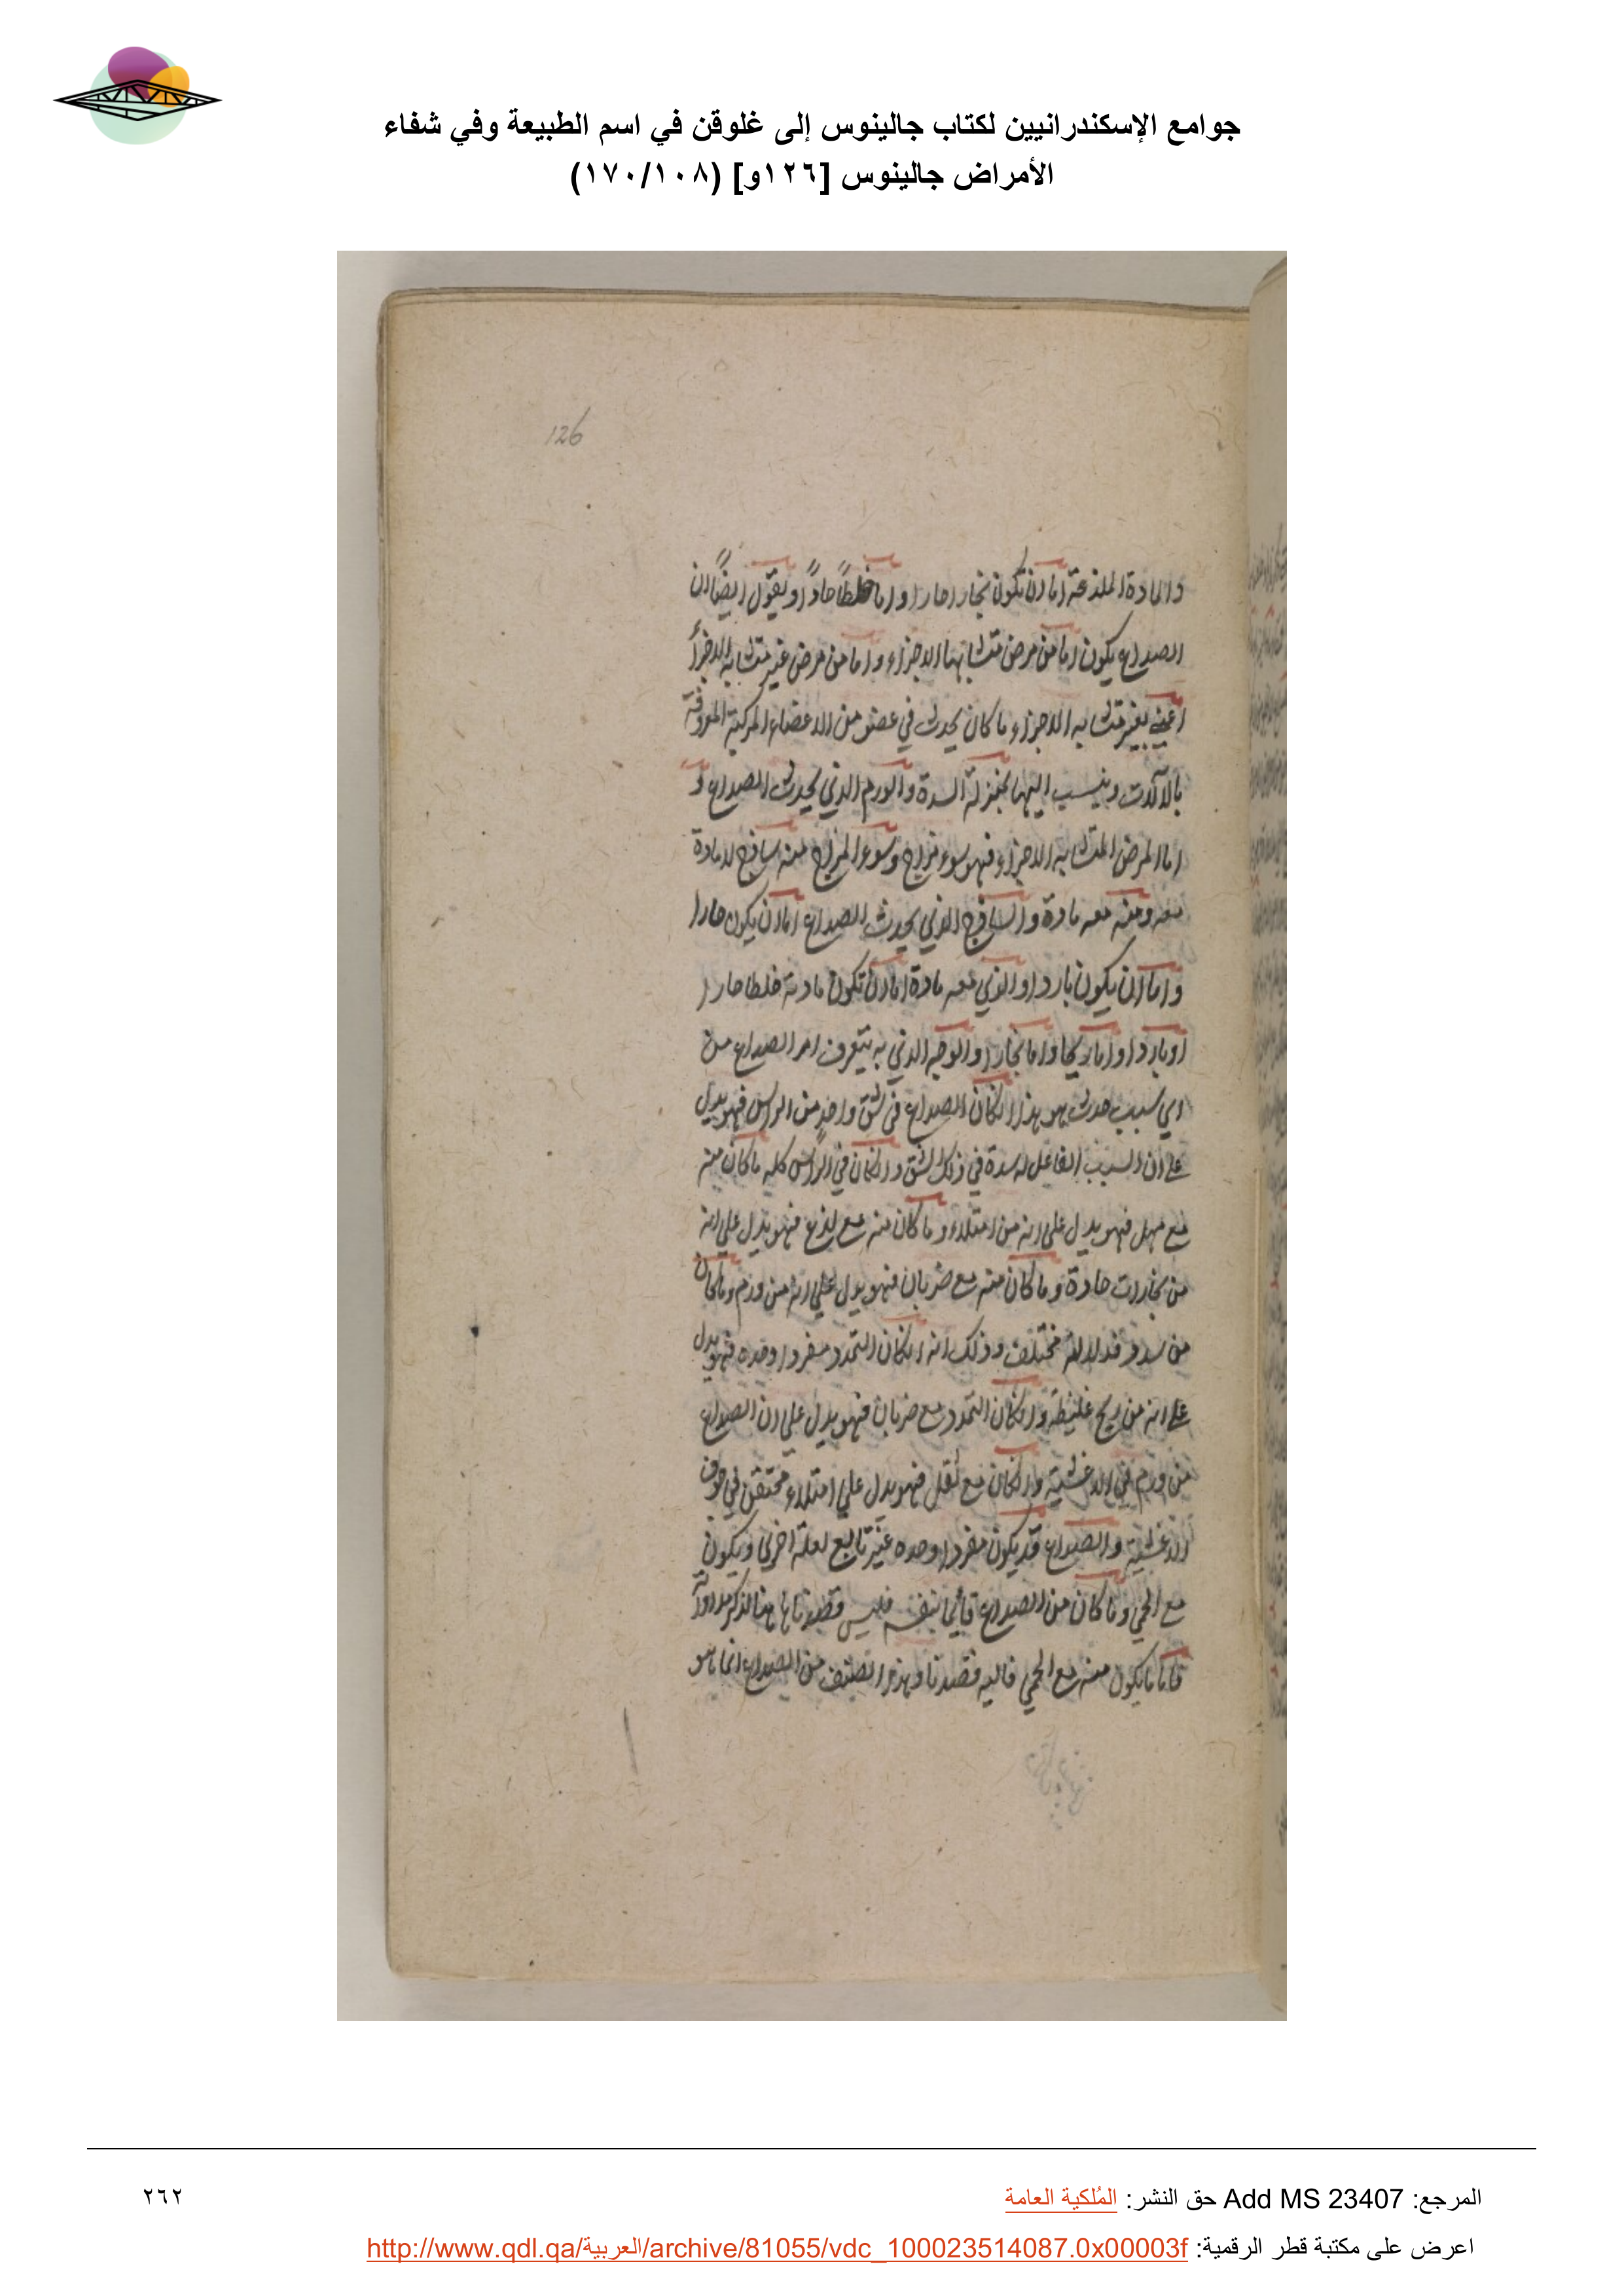 جوامع الإسكندرانيين لكتاب جالينوس إلى غلوقن في اسم الطبيعة وفي شفاء
الأمراض جالينوس [١٢٦و] (١٧٠/١٠٨)
126
والمادة الملذعة اما ان تكون بخارا حارا واما خلطا حادا ويقول ايضا ان
الصداع يكون اما من مرض متشابها الاجزاء واما من مرض غير متشابه الاجزأ
اعني بغير متشابه الاجزاء ما كان يحدث في عضو من الاعضاء المركبة المعروفة
بالآلات وينسب اليها بمنزلة السدة والورم الذي يحدث الصداع و
اما المرض المتشابه الاجزاء فهو سوء مزاج وسوء المزاج منه ساذج لا مادة
معه ومنه معه مادة والساذج الذي يحدث الصداع اما ان يكون حارا
واما ان يكون باردا والذي معه مادة اما ان تكون مادته خلطا حارا
او باردا واما ريحا واما بخارا والوجه الذي به يتعرف امر الصداع من
اي سبب حدث هو هذا انكان الصداع في شق واحد من الراس فهو يدل
على ان السبب الفاعل له سدة في ذلك الشق وانكان في الراس كله ما كان منه
مع فهو يدل على انه من امتلاء وما كان منه مع لذع فهو يدل على انه
من بخارات حادة وما كان منه مع ضربان فهو يدل على انه من ورم وما كان
من فدلالته مختلفة وذلك انه انكان التمدد مفردا وحده فهو يدل
على انه من ريح غليظة وانكان التمدد مع ضربان فهو يدل على ان الصداع
من ورم في الاغشية وانكان مع ثقل فهو يدل على امتلاء محتقن في جوف
الاغشية والصداع قد يكون مفردا وحده غير تابع لعلة اخرى ويكون
مع الحمي وما كان من الصداع قائما بنفسه فليس قصدنا هاهنا لذكر مداواته
فاما ما يكون منه مع الحمي فاليه قصدنا وهذا الصنف من الصداع انما هو
المرجع: Add MS 23407 حق النشر: المُلكية العامة
٢٦٢
اعرض على مكتبة قطر الرقمية: http://www.qdl.qa/العربية/archive/81055/vdc_100023514087.0x00003f